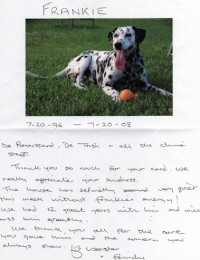 FRANKIE
7-20-96 – 7-20-08
Dr. Dr. + all the clinic
staff,
Thank you so much for your card. We
really appreciate your kindness.
The house has definitely seemed very quiet
this week without Frankie's energy!
We had 12 great years with him and will
miss him greatly.
We thank you all for the care
you gave him and the concern you
always show.
+ family